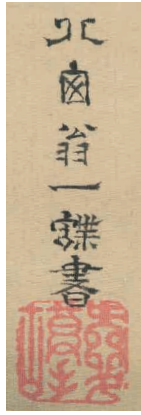 北窗翁一蝶書